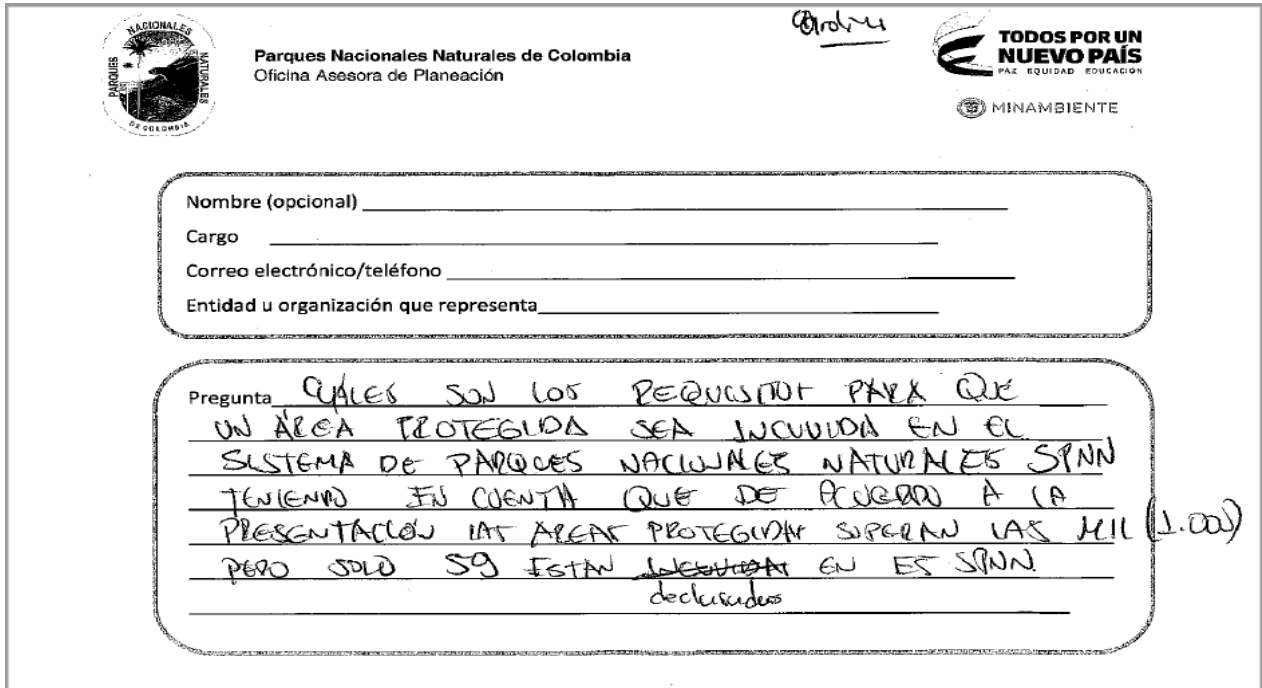 PARQUES NACIONALES NATURALES DE COLOMBIA
Parques Nacionales Naturales de Colombia
Oficina Asesora de Planeación
TODOS POR UN
NUEVO PAÍS
PAZ EQUIDAD EDUCACIÓN
MINAMBIENTE
Nombre (opcional)
Cargo
Correo electrónico/teléfono
Entidad u organización que representa
Pregunta CUÁLES SON LOS REQUISITOS PARA QUE
UN ÁREA PROTEGIDA SEA INCLUIDA EN EL
SISTEMA DE PARQUES NACIONALES NATURALES SPNN
TENIENDO EN CUENTA QUE DE ACUERDO A LA
PRESENTACIÓN LAS AREAS PROTEGIDAS SUPERAN LAS MIL (1.000)
PERO SOLO 59 ESTAN INCLUIDAS EN ES SPNN
declaradas